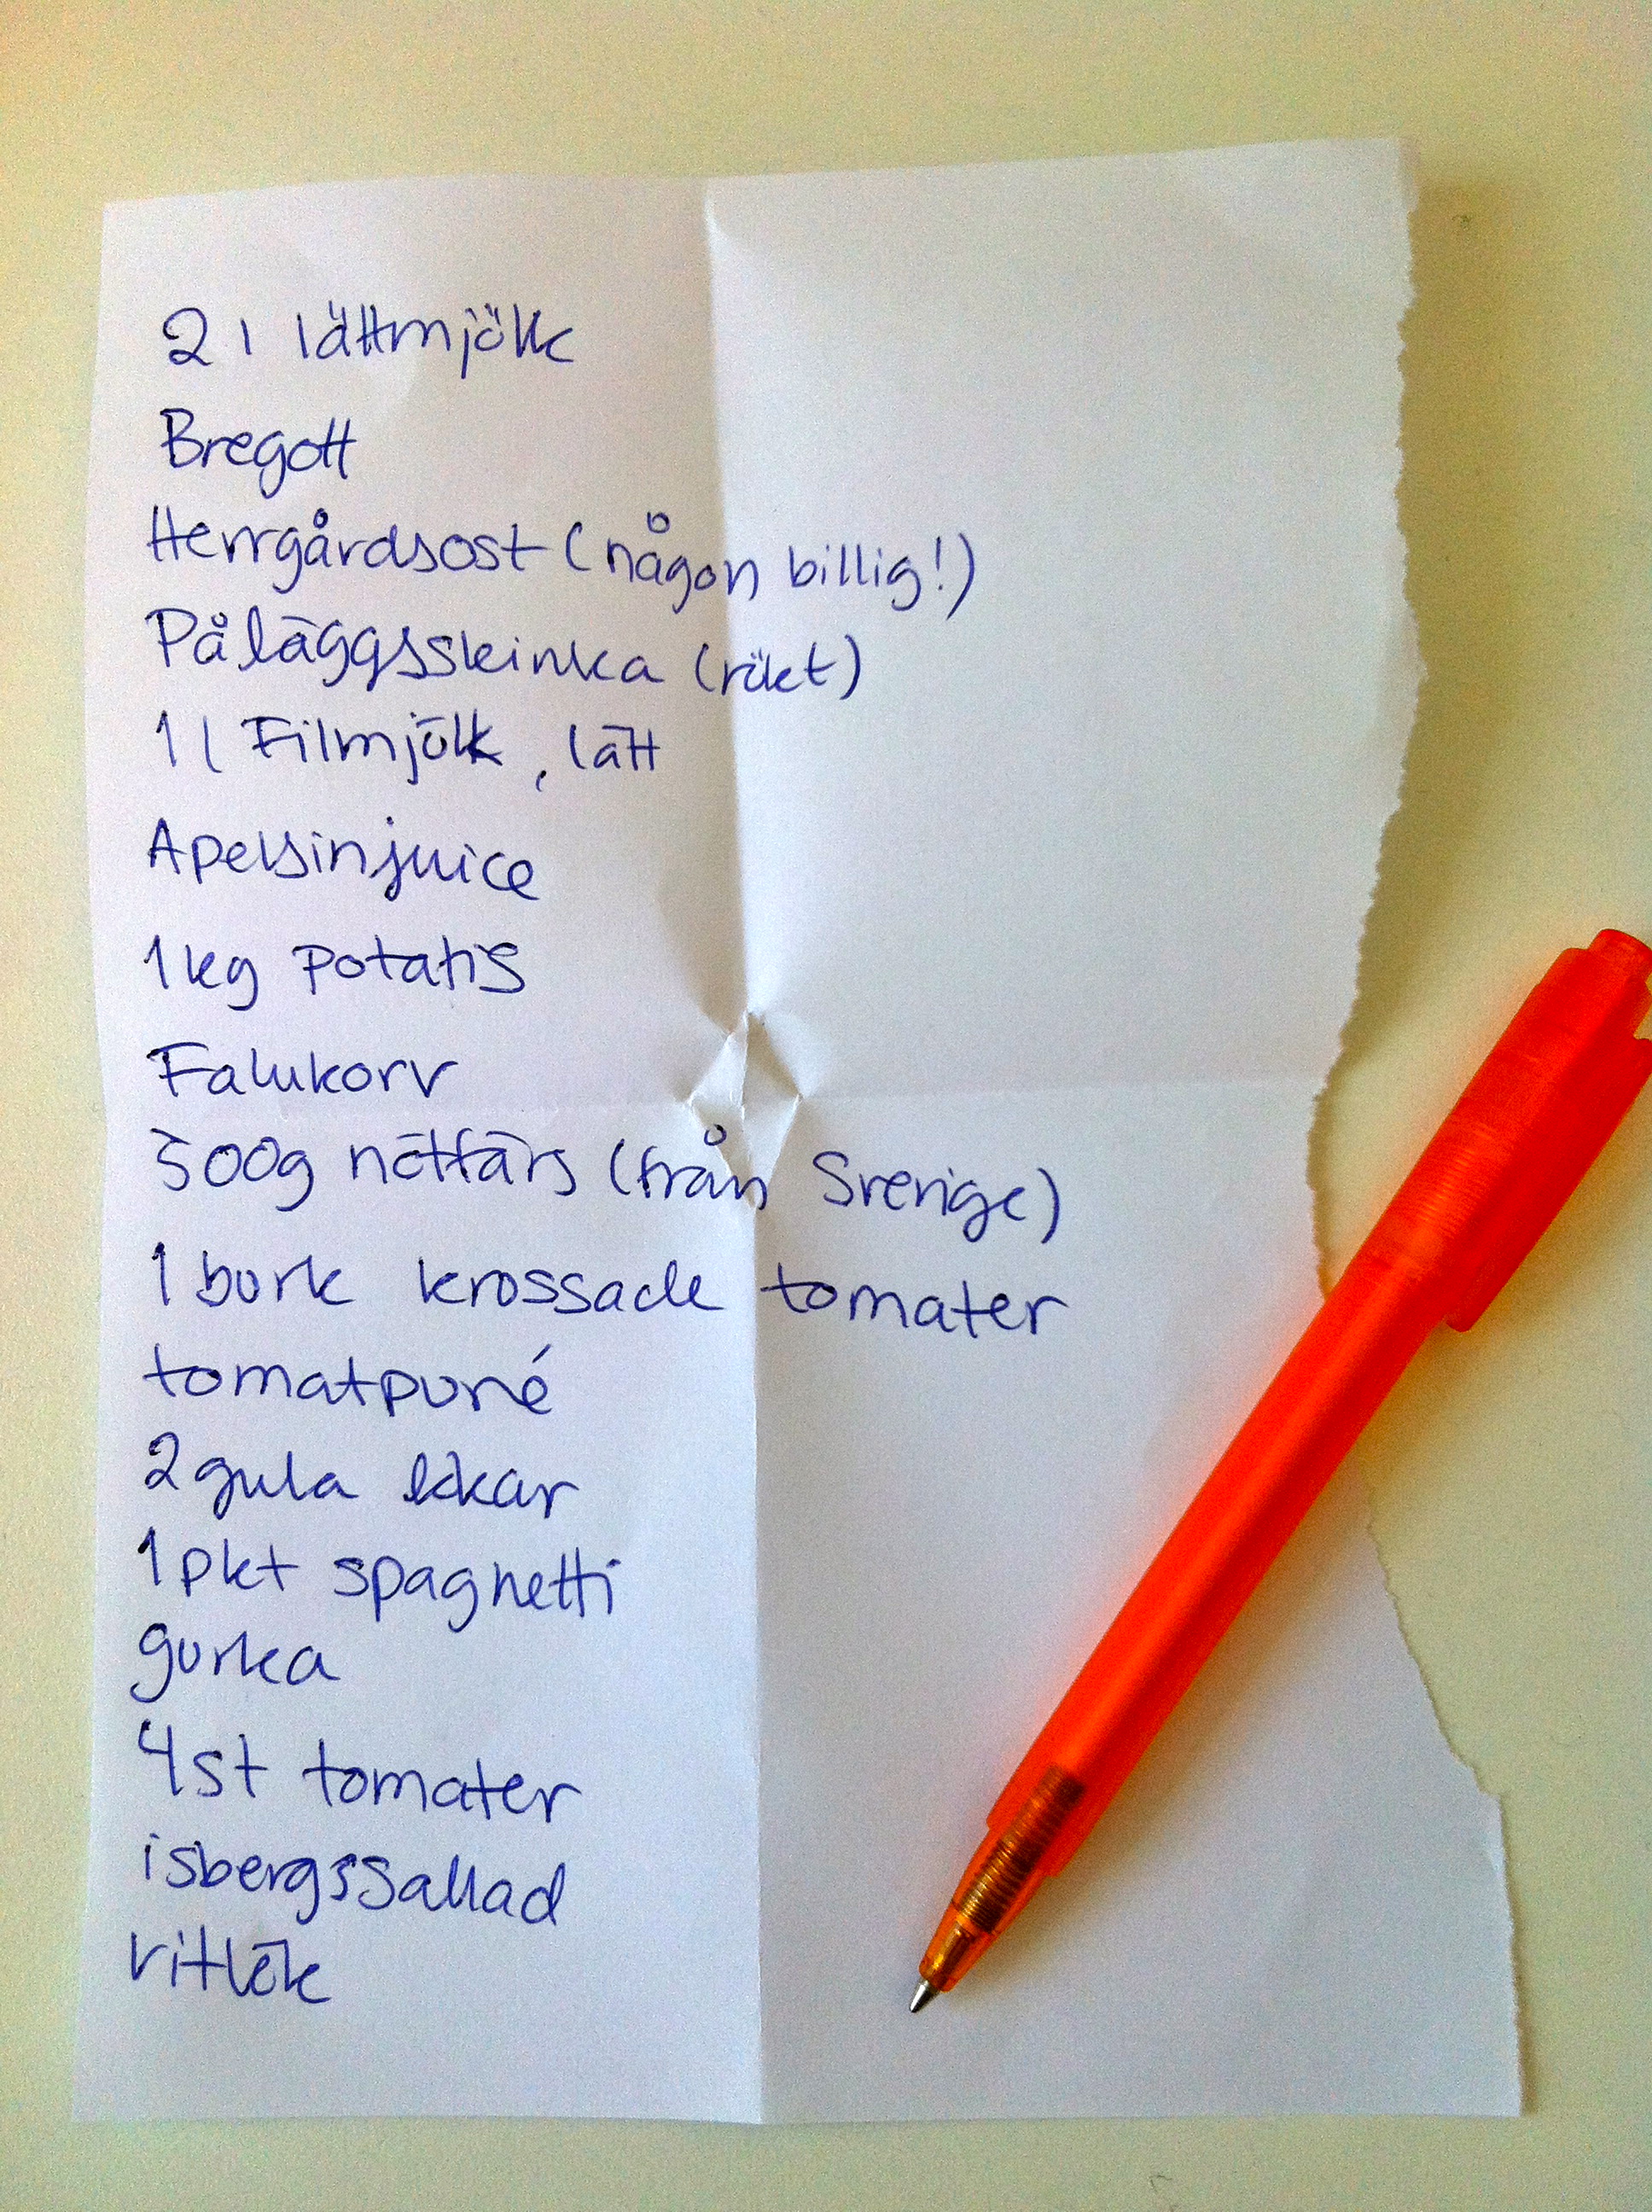 2 l lättmjölk
Bregott
Herrgårdsost (någon billig!)
Påläggsskinka (rökt)
1 l Filmjölk, lätt
Apelsinjuice
1 kg potatis
Falukorv
500g nötfärs (från Sverige)
1 burk krossade tomater
tomatpuré
2 gula lökar
1 pkt spagnetti
gurka
4 st tomater
isbergssallad
vitlök